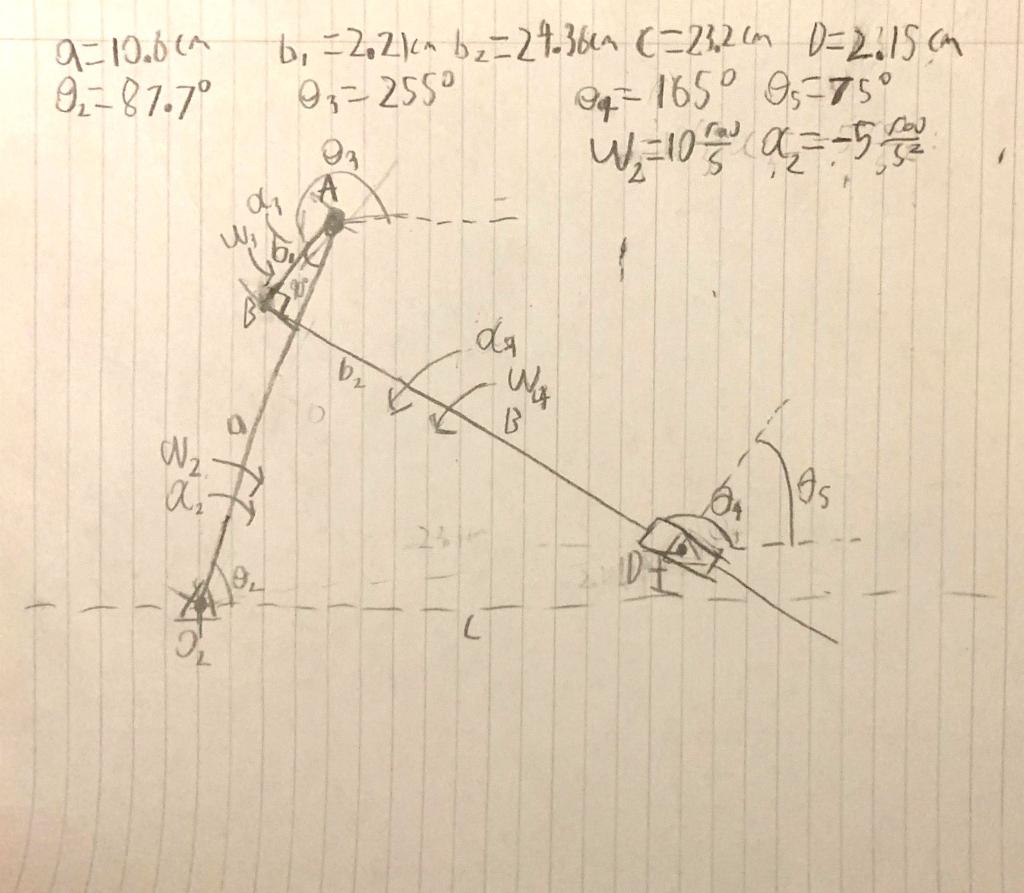 a=10.6cm b₁=2.21cm b₂=24.36cm C=23.2cm D=2.15cm
θ₂=87.7° θ₃=255° θ₄=165° θ₅=75°
W₂=10 rad/s α₂=-5 rad/s²
θ₃
A
α₃
W₃ b₁
B
α₄
b₂ W₄
B
a
W₂
α₂
θ₄ θ₅
θ₂ D
O₂ C